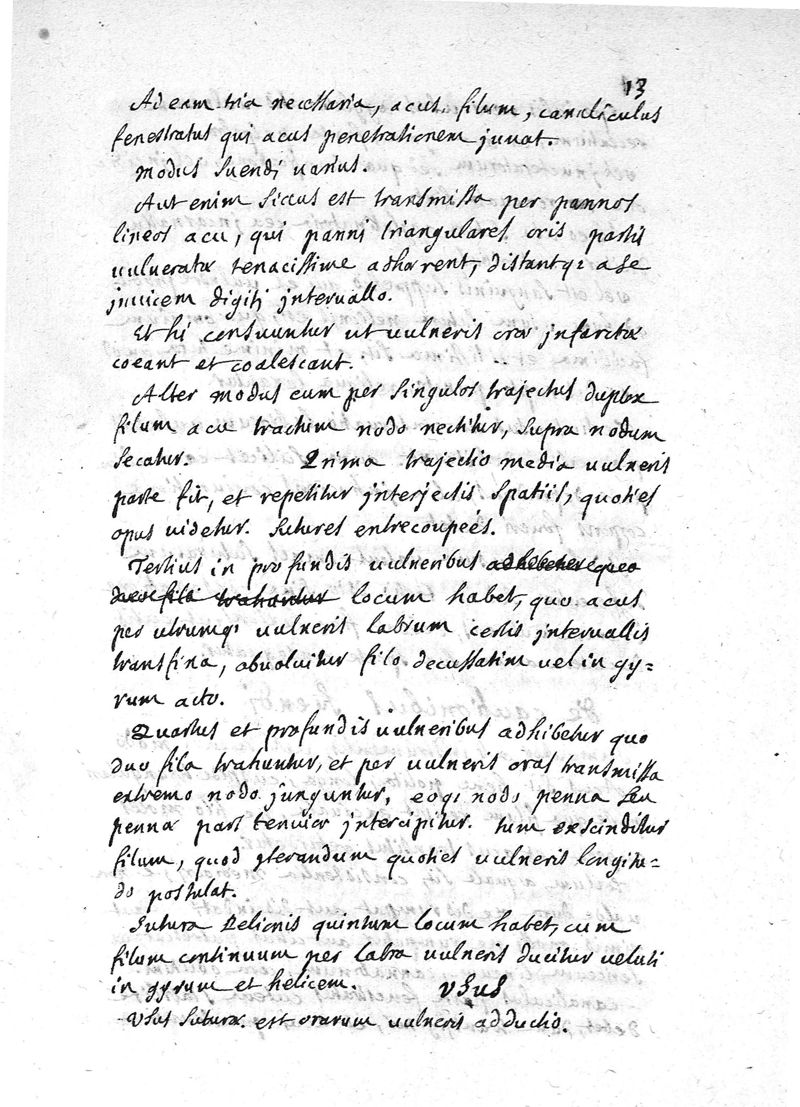 13
Ad eam tria necessaria, acus, filum, canaliculus
fenestratus qui acus penetrationem juvat.
modus suendi varius.
Aut enim siccus est transmissa per pannos
lineos acu, qui panni triangulares oris partis
vulneratæ tenacissime adhærent, distantq; a se
jnvicem digiti jntervallo.
Et hi consuuntur ut vulneris oræ jnfarctæ
coeant et coalescant.
Alter modus cum per singulos trajectus duplex
filum acu tractum nodo nectitur, supra nodum
secatur. Prima trajectio media vulneris
parte fit, et repetitur jnterjectis spatiis, quoties
opus videtur. sutures entrecoupeés.
Tertius in profundis vulneribus adhibetur quo
duo fila trahuntur locum habet, quo acus
per utrumq; vulneris labrum certis jntervallis
transfixa, obvolvitur filo decussatim vel in gy=
rum acto.
Quartus et profundis vulneribus adhibetur quo
duo fila trahuntur, et per vulneris oras transmissa
extremo nodo junguntur, eoq; nodo penna seu
pennæ pars tenuior jntercipitur. tum exscinditur
filum, quod jterandum quoties vulneris longitu=
do postulat.
Sutura Pelionis quintum locum habet, cum
filum continuum per labra vulneris ducitur veluti
in gyrum et helicem. usus
usus suturæ est orarum vulneris adductio.